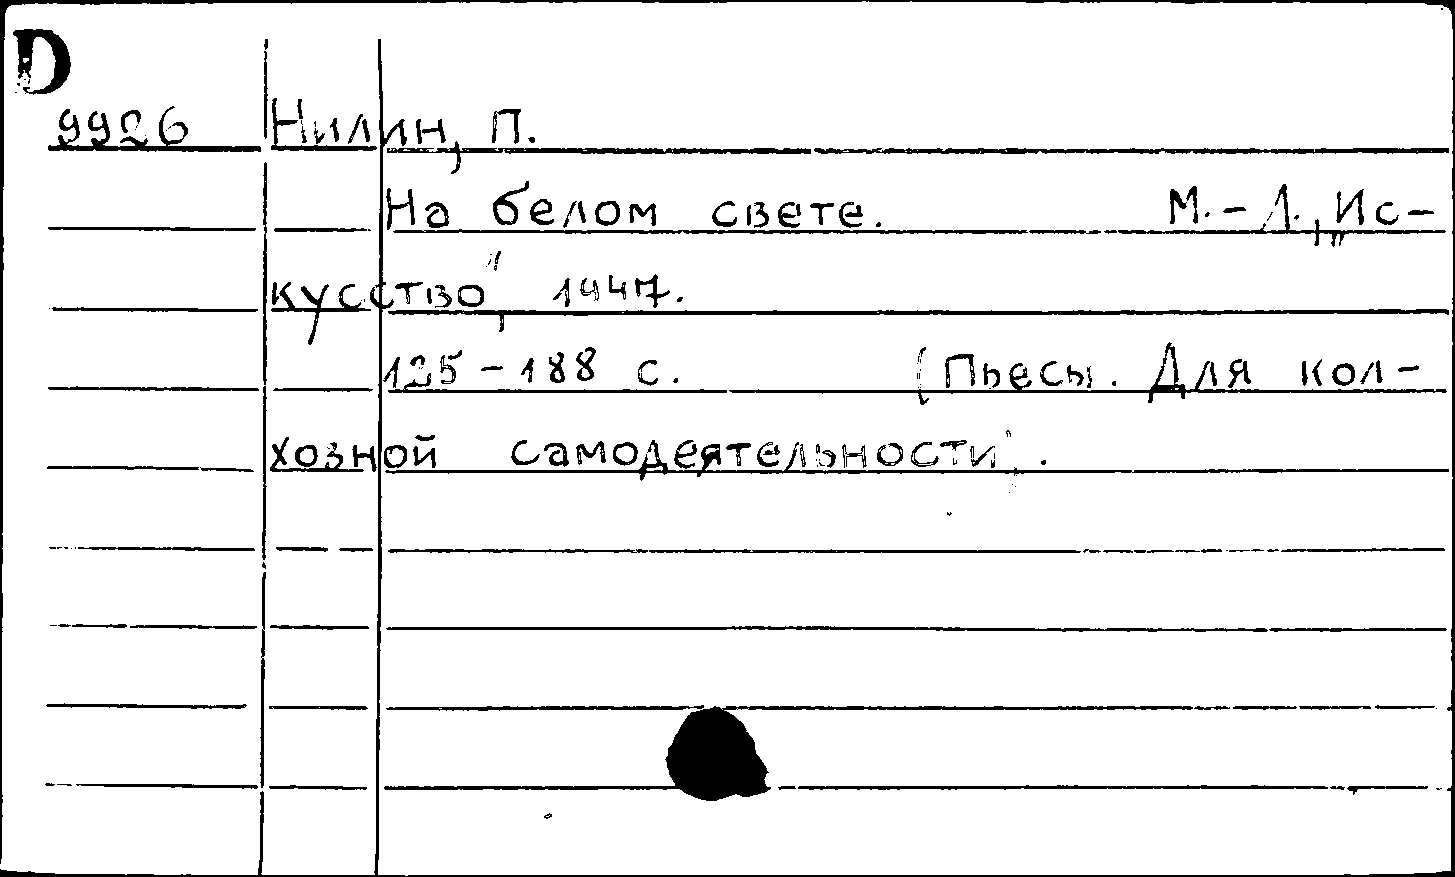 D
9926 Нилин, П.
На белом свете. М.-Л., „Ис-
кусство", 1947.
125-188 с. (Пьесы. Для кол-
хозной самодеятельности).